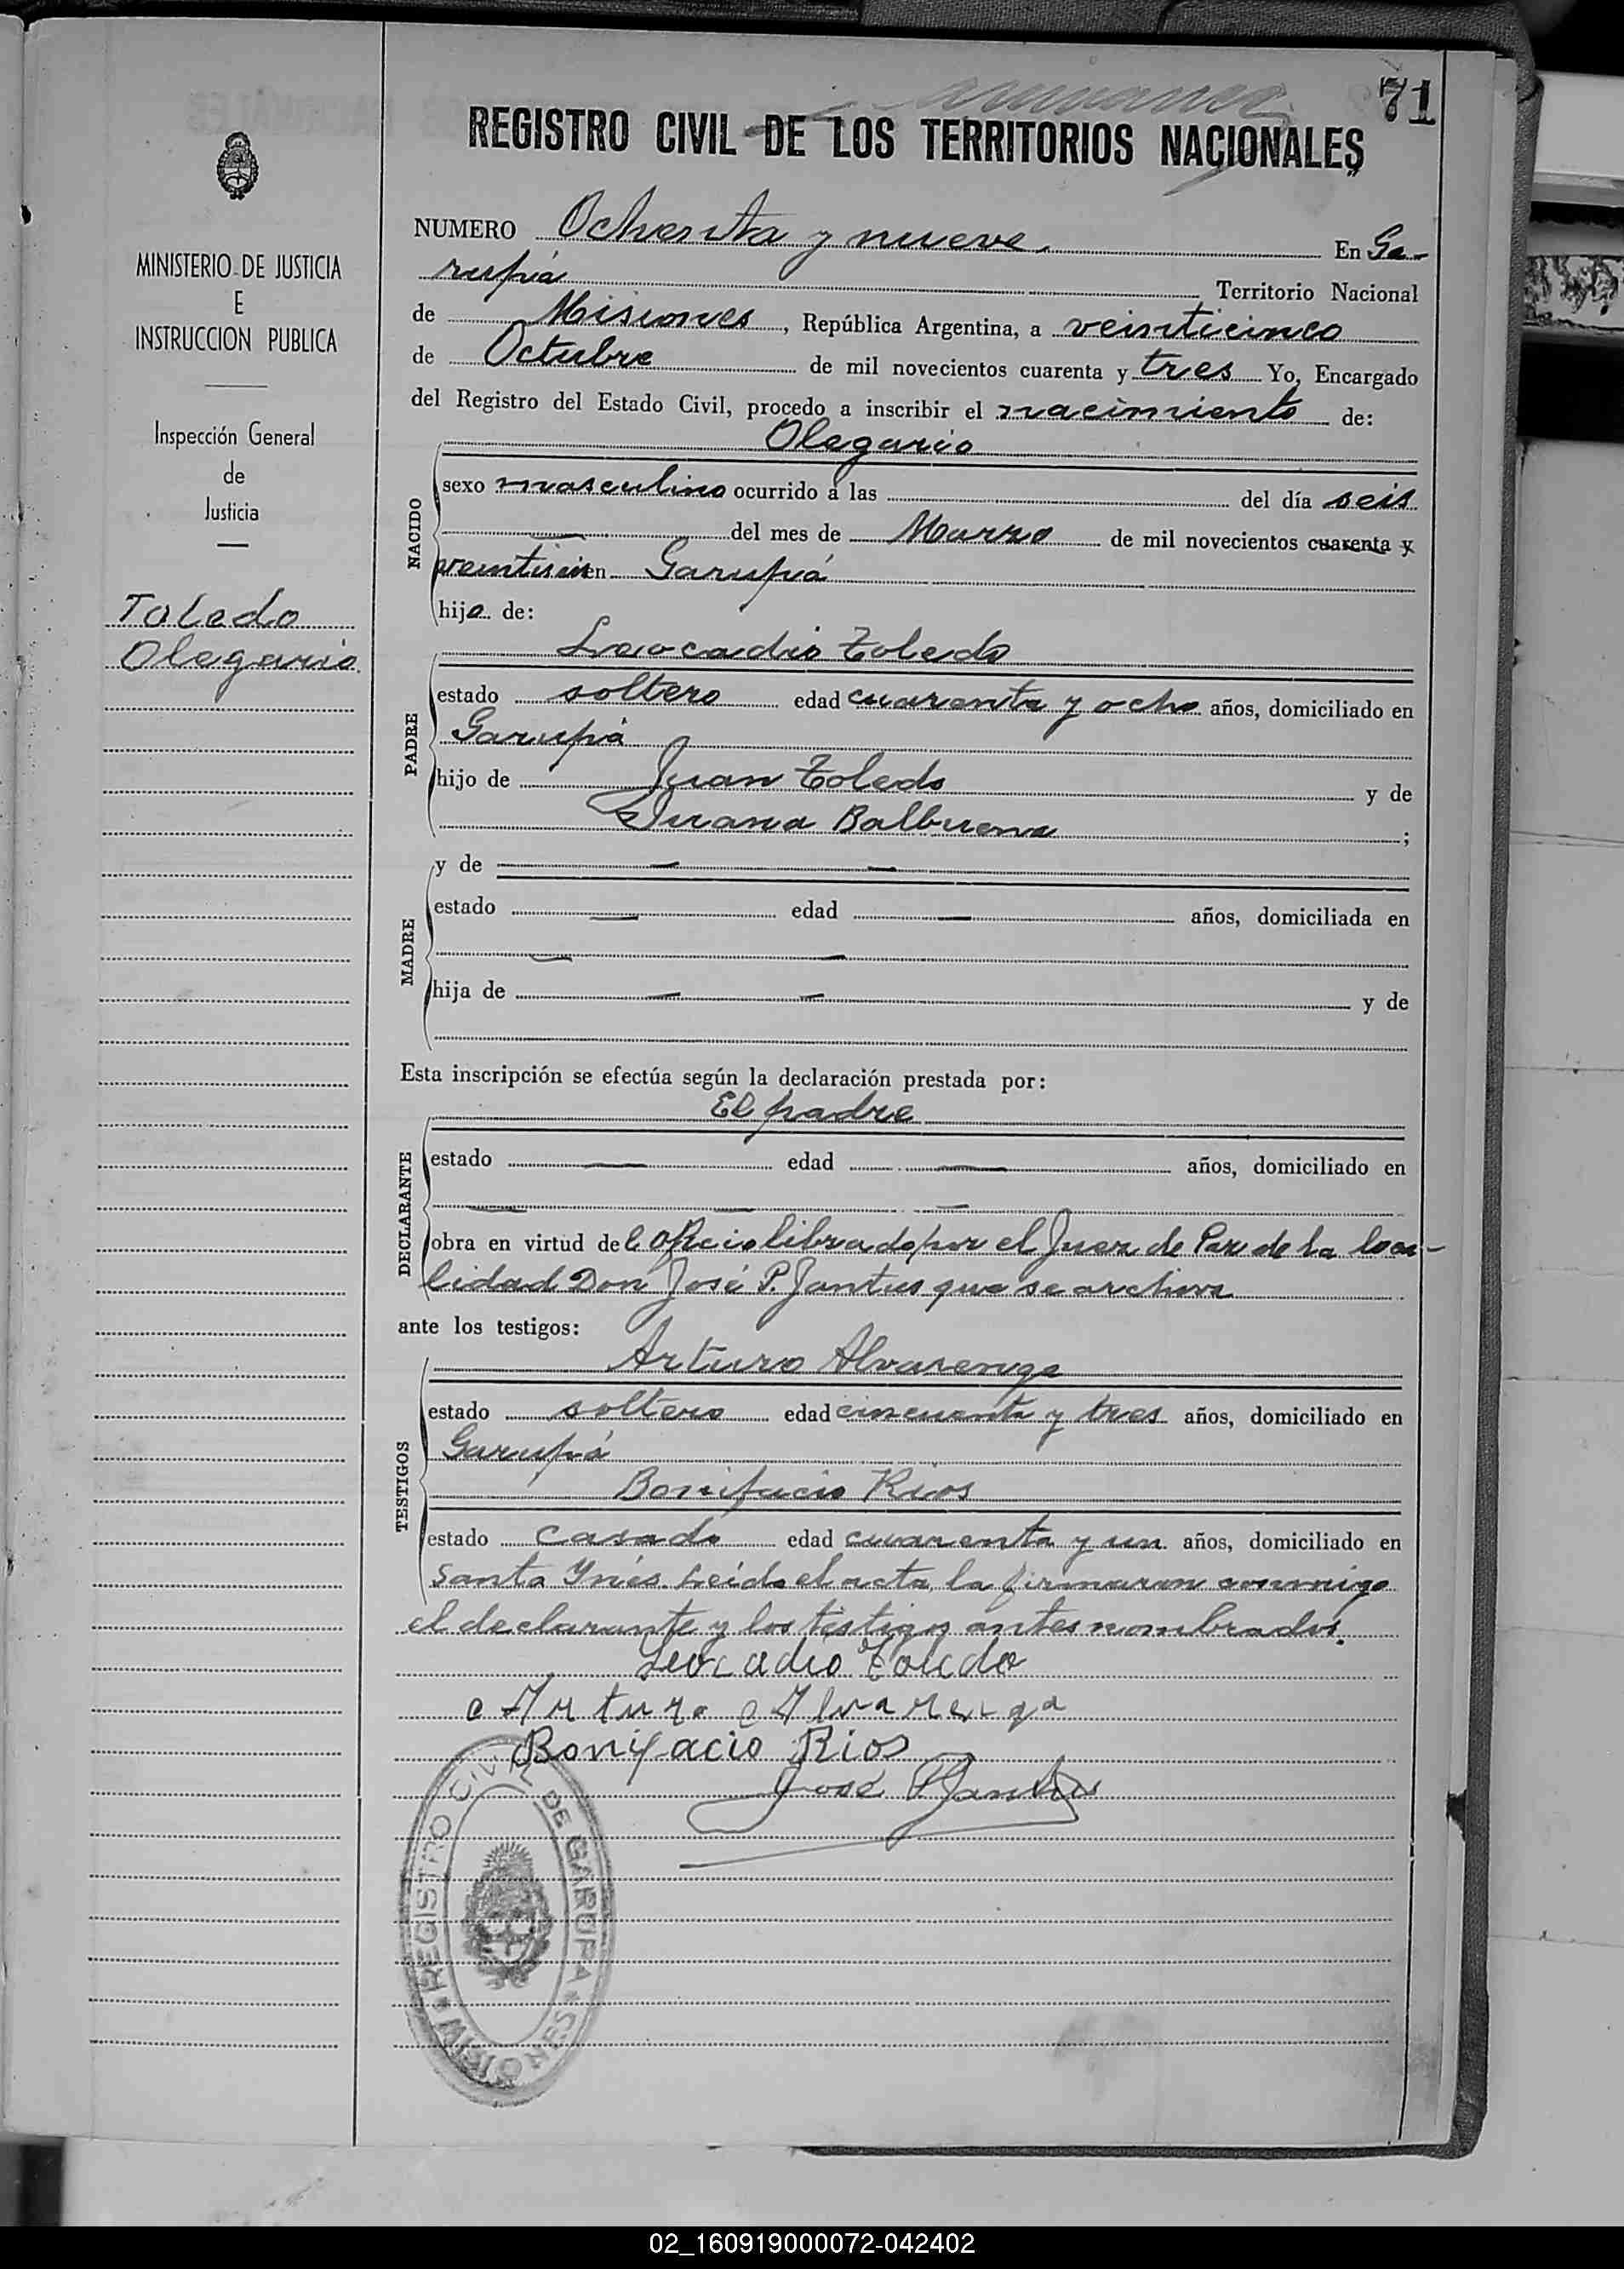 71
REGISTRO CIVIL DE LOS TERRITORIOS NACIONALES
MINISTERIO DE JUSTICIA
E
INSTRUCCION PUBLICA
Inspección General
de
Justicia
Toledo
Olegario
NUMERO Ochenta y nueve. En Ga-
rupá Territorio Nacional
de Misiones, República Argentina, a veinticinco
de Octubre de mil novecientos cuarenta y tres Yo, Encargado
del Registro del Estado Civil, procedo a inscribir el nacimiento de:
Olegario
NACIDO
sexo masculino ocurrido a las del día seis
— del mes de Marzo de mil novecientos cuarenta y
en Garupá
hijo de:
PADRE
Leocadio Toledo
estado soltero edad cuarenta y ocho años, domiciliado en
Garupá
hijo de Juan Toledo y de
Juana Balbuena ;
MADRE
y de — —
estado — edad — años, domiciliada en
— —
hija de — — y de
Esta inscripción se efectúa según la declaración prestada por:
El padre
DECLARANTE
estado — edad — años, domiciliado en
— — —
obra en virtud del oficio librado por el Juez de Paz de la loca-
lidad Don José P. Jantus que se archiva
ante los testigos:
TESTIGOS
Arturo Alvarenga
estado soltero edad cincuenta y tres años, domiciliado en
Garupá
Bonifacio Rios
estado casado edad cuarenta y un años, domiciliado en
Santa Ynés. Leída el acta, la firmaron conmigo
el declarante y los testigos antes nombrados.
Leocadio Toledo
Arturo Alvarenga
Bonifacio Rios
José P Jantus
REGISTRO CIVIL DE GARUPA * MISIONES *
02_160919000072-042402